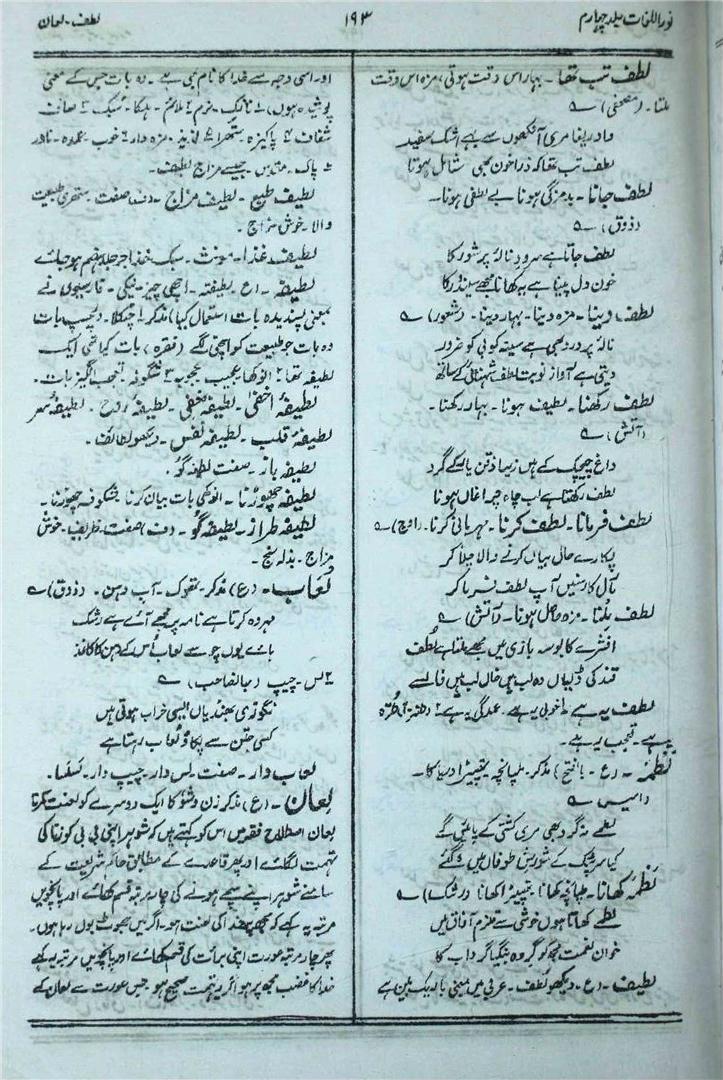 نور اللغات جلد چہارم
۱۹۳
لطف - لعان
لطف تب تھا - بہار اس وقت ہوتی، مزہ اس وقت
ملتا - (مصحفی) ؎
وا دریغا مری آنکھوں سے بہے اشک سفید
لطف تب تھا کہ ذرا خون بھی شامل ہوتا
لطف جانا - بدمزگی ہونا بے لطفی ہونا -
(ذوق) ؎
لطف جاتا ہے سرود نالۂ پر شور کا
خون دل پینا ہے یہ کھانا مجھے سیندور کا
لطف دینا - مزہ دینا - بہار دینا - (شعور) ؎
نالۂ پر درد بھی ہے سینہ کوبی کو ضرور
دیتی ہے آواز نوبت لطف شہنائی کے ساتھ
لطف رکھنا - لطیف ہونا - بہار رکھنا -
(آتش) ؎
داغ چیچک کے ہیں زیبا ذقن یار کے گرد
لطف رکھتا ہے لب چاہ چراغاں ہونا
لطف فرمانا - لطف کرنا - مہربانی کرنا - (اوج) ؎
پکارے حال بیاں کرنے والا چلا کر
مآل کار سنیں آپ لطف فرما کر
لطف ملنا - مزہ حاصل ہونا - (آتش) ؎
افشرے کا بوسہ بازی میں مجھے ملتا ہے لطف
قند کی ڈلیاں وہ لب ہیں خال لب ہیں فالسے
لطف یہ ہے ۱ خوبی یہ ہے - عمدگی یہ ہے ۲ (طنزاً) طرّہ
یہ ہے - تعجب یہ ہے -
لطمہ - (ع - بالفتح) مذکر - طمانچہ - تھپیڑا (دریا کا) -
(انیس) ؎
لطمے نہ گر دبھی مری کشتی کے پائیں گے
کیا سر پٹک کے شورش طوفاں میں گئے
لطمہ کھانا - طمانچہ کھانا - تھپیڑا کھانا (رشک) ؎
لطمے کھاتا ہوں خوشی سے قلزم آفاق میں
خوان نعمت مجھ کو گردہ بنگیا گرداب کا
لطیف - (ع) - دیکھو لطف - عربی میں معنی باریک بین ہے
اور اسی وجہ سے خدا کا نام بھی ہے - وہ بات جس کے معنی
پوشیدہ ہوں) ۱ نازک - نرم ۲ ملائم - ہلکا - سبک ۳ صاف
شفاف ۴ پاکیزہ ستھرا ۵ لذیذ - مزہ دار ۶ خوب - عمدہ - نادر
۷ پاک - مقدس - جیسے مزاج لطیف -
لطیف طبع - لطیف مزاج - (ف) صفت - ستھری طبیعت
والا - خوش مزاج -
لطیف غذا - مونث - سبک غذا جو جلد ہضم ہو جائے
لطیفہ - (ع) لطیفتہ - اچھی چیز - نیکی - فارسیوں نے
بمعنی پسندیدہ بات استعمال کیا) مذکر ۱ چٹکلا - دلچسپ بات
وہ بات جو طبیعت کو اچھی لگے (فقرہ) بات کیا تھی ایک
لطیفہ تھا ۲ انوکھا عجیب عجوبہ ۳ شگوفہ تعجب انگیز بات -
لطیفۂ اخفیٰ - لطیفۂ خفی - لطیفۂ روح - لطیفۂ سر
لطیفۂ قلب - لطیفۂ نفس - دیکھو لطائف -
لطیفہ باز - صفت لطیفہ گو -
لطیفہ چھوڑنا - انوکھی بات بیان کرنا - شگوفہ چھوڑنا -
لطیفہ طراز - لطیفہ گو - (ف) صفت - ظریف - خوش
مزاج - بذلہ سنج -
لعاب - (ع) مذکر - تھوک - آب دہن - (ذوق) ؎
مہر وہ کرتا ہے نامہ پر مجھے آئے ہے رشک
ہائے یوں چوسے لعاب اس کے دہن کا کاغذ
۲ لس - چیپ (جانصاحب) ؎
نگوڑی بھنڈیاں ایسی خراب ہوتی ہیں
کسی جتن سے پکاؤ لعاب رہتا ہے
لعاب دار - صفت - لس دار - چیپ دار - لسلسا -
لعان - (ع) مذکر - زن و شو کا ایک دوسرے کو لعنت کرنا
لعان اصطلاح فقہ میں اس کو کہتے ہیں کہ شوہر اپنی بی بی کو زنا کی
تہمت لگائے اور پھر قاعدے کے مطابق حاکم شریعت کے
سامنے شوہر اپنے سچے ہونے کی چار مرتبہ قسم کھائے اور پانچویں
مرتبہ یہ کہے کہ مجھ پر خدا کی لعنت ہو - اگر میں جھوٹ بول رہا ہوں -
پھر چار مرتبہ عورت اپنی برأت کی قسم کھائے اور پانچویں مرتبہ یہ کہے
خدا کا غضب مجھ پر ہو اگر یہ تہمت صحیح ہو - جس عورت سے لعان کے